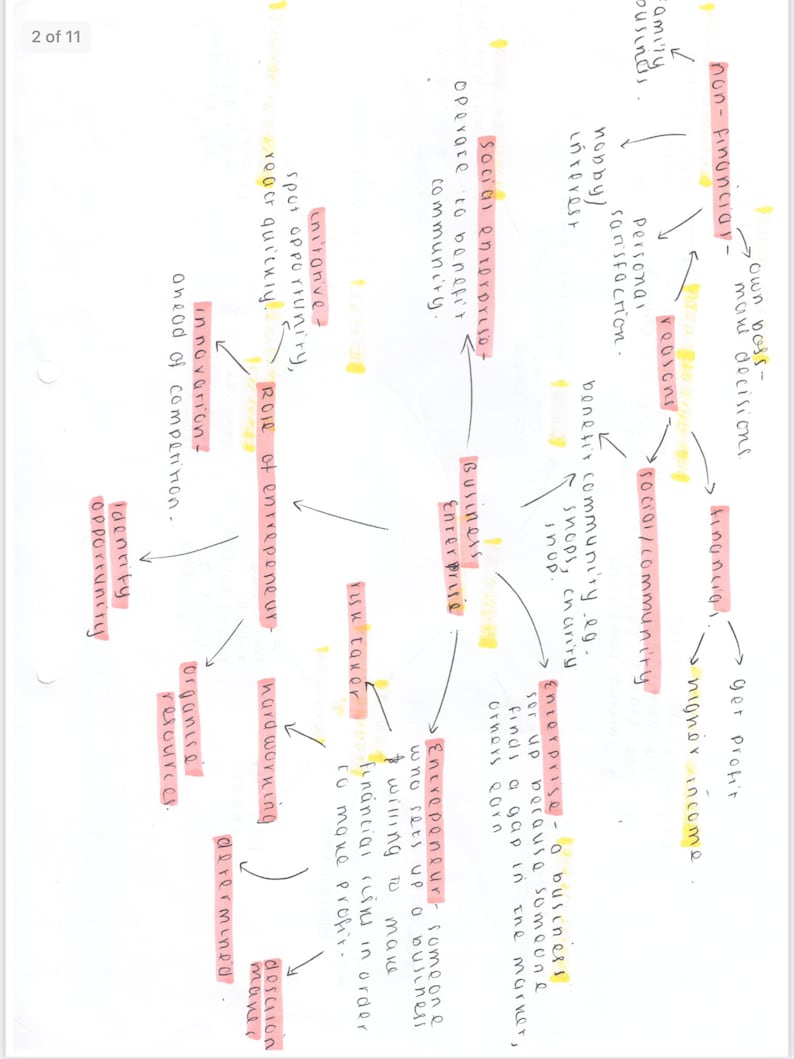 2 of 11
non-financial-
family
business.
hobby/
interest
personal
satisfaction.
own boss-
make decisions
reasons-
financial.
get profit
higher income.
social/community
benefit community eg.
shops, charity
shop.
social enterprise-
operate to benefit
community.
Business
Enterprise.
Enterprise- a business
set up because someone
finds a gap in the market,
others earn
Entrepeneur- someone
who sets up a business
& willing to make
financial risks in order
to make profit.
risk taker
hardworking
determined.
descison
maker
Role of entrepeneur-
initative-
spot opportunity,
react quickly.
innovation-
ahead of competition.
identity
opportunity
organise
resources.